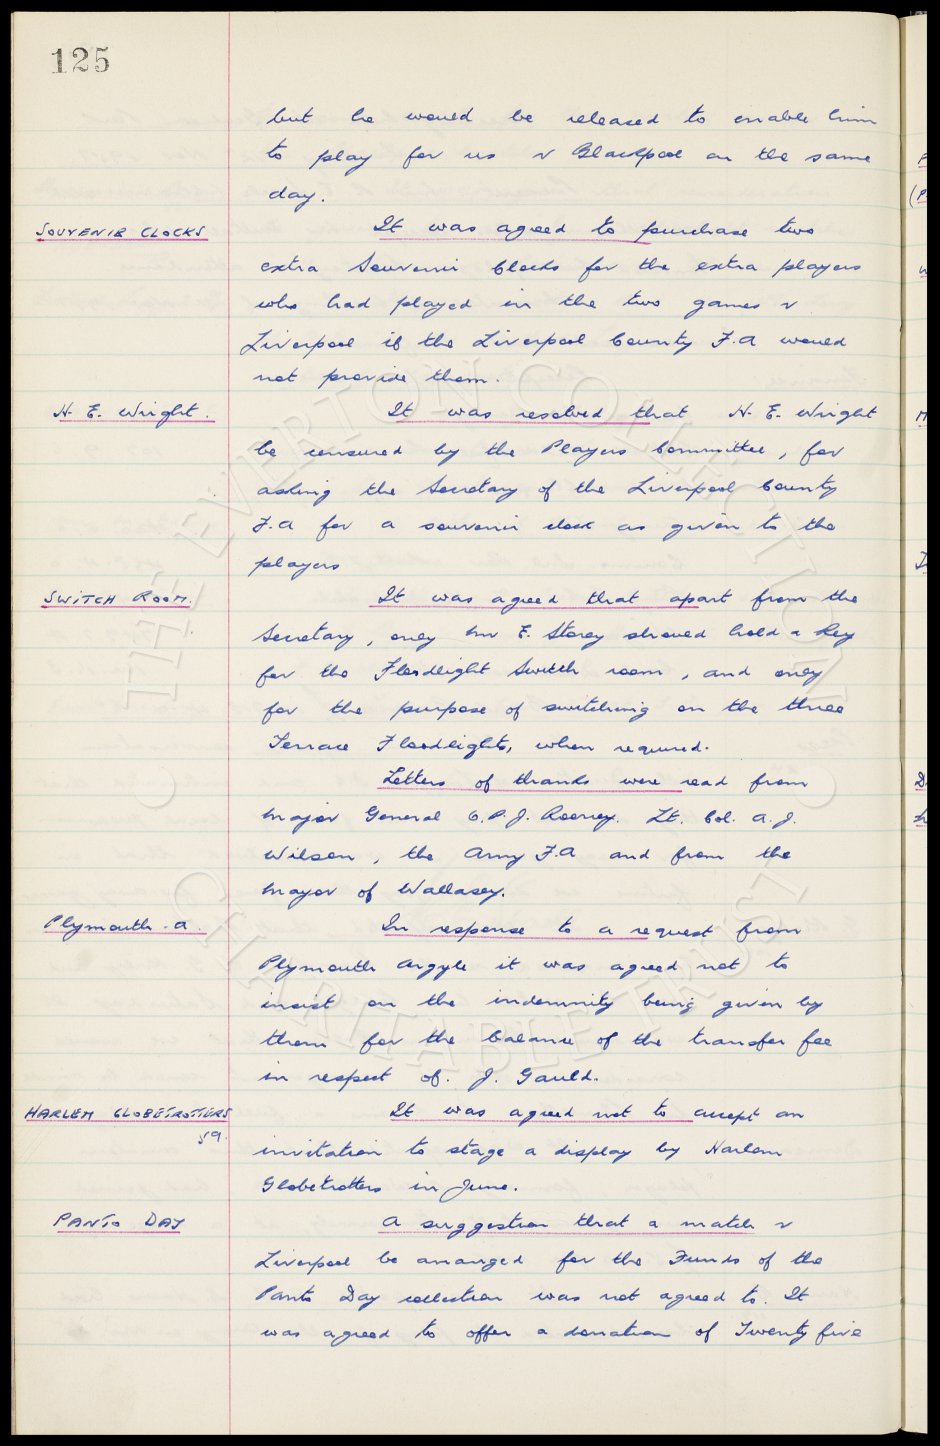 125
but he would be released to enable him
to play for us v Blackpool on the same
day.
SOUVENIR CLOCKS It was agreed to purchase two
extra Souvenir Clocks for the extra players
who had played in the two games v
Liverpool if the Liverpool County F.A would
not provide them.
H. E. Wright. It was resolved that H. E. Wright
be censured by the Players Committee, for
asking the Secretary of the Liverpool County
F.A for a souvenir clock as given to the
players
SWITCH ROOM. It was agreed that apart from the
Secretary, only Mr E. Storey should hold a key
for the Floodlight Switch room, and only
for the purpose of switching on the three
Terrace Floodlights, when required.
Letters of thanks were read from
Major General C.P.J. Rooney. Lt. Col. A. J.
Wilson, the Army F.A and from the
Mayor of Wallasey.
Plymouth. A. In response to a request from
Plymouth Argyle it was agreed not to
insist on the indemnity being given by
them for the balance of the transfer fee
in respect of. J. Gauld.
HARLEM GLOBETROTTERS It was agreed not to accept an
59. invitation to stage a display by Harlem
Globetrotters in June.
PANTO DAY A suggestion that a match v
Liverpool be arranged for the Funds of the
Panto Day collection was not agreed to. It
was agreed to offer a donation of Twenty five
THE EVERTON COLLECTION
CHARITABLE TRUST